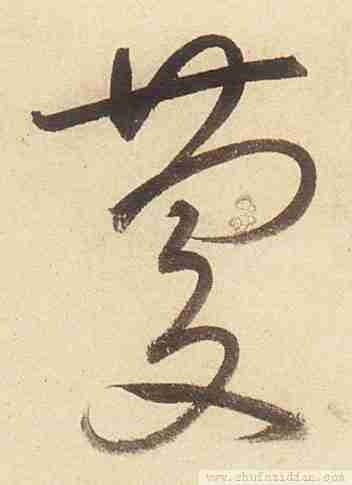 蔓
www.shufazidian.com